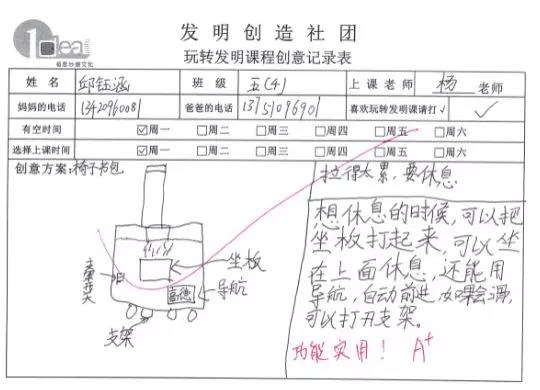 idea
易思妙意文化
发明创造社团
玩转发明课程创意记录表
姓名 邱钰涵 班级 五(4) 上课老师 杨老师
妈妈的电话 13420960081 爸爸的电话 13751096901 喜欢玩转发明课请打√ ✓
有空时间 ☑周一 □周二 □周三 □周四 □周五 □周六
选择上课时间 ☑周一 □周二 □周三 □周四 □周五 □周六
创意方案:椅子书包
拉得太累,要休息
想休息的时候,可以把
坐板打起来,可以坐
在上面休息,还能用
导航,自动前进,如果会滑,
可以打开支架。
坐板
导航
高德
支架
功能实用! A+